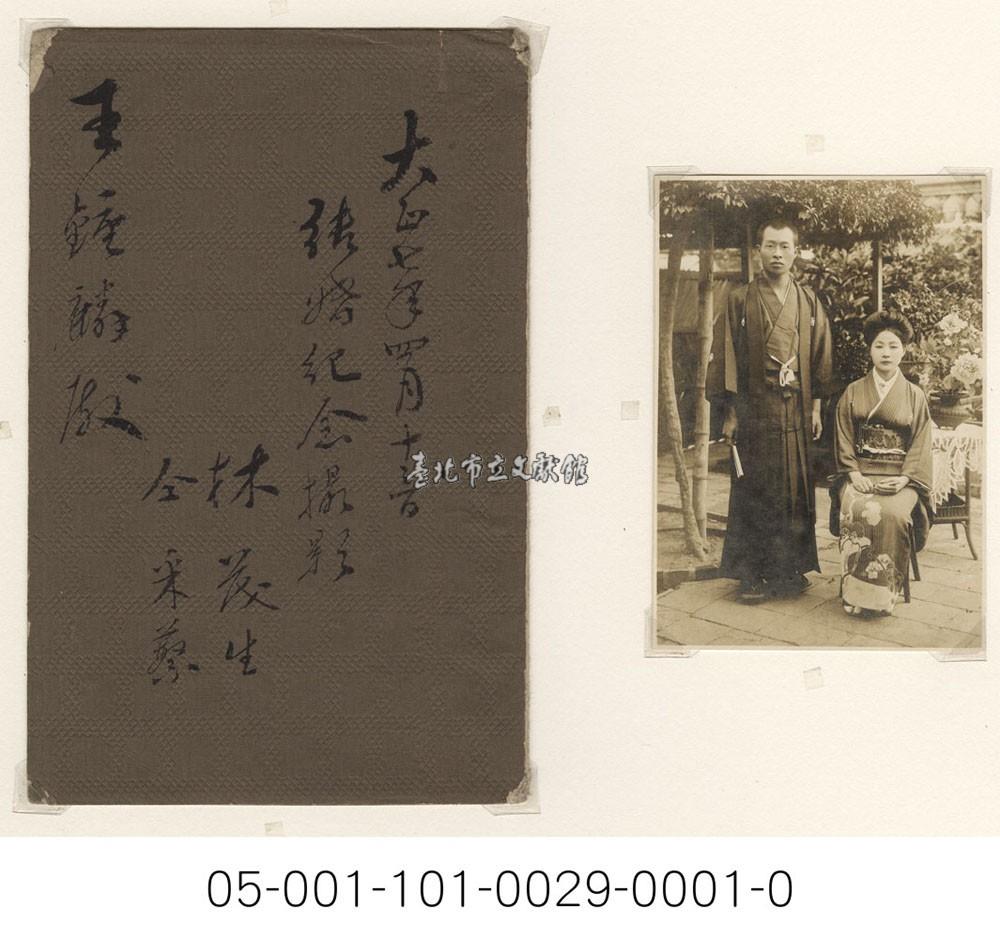 大正七年四月十一日
結婚紀念撮影
林茂生
仝采蘩
王鐘麟殿
臺北市立文獻館
05-001-101-0029-0001-0